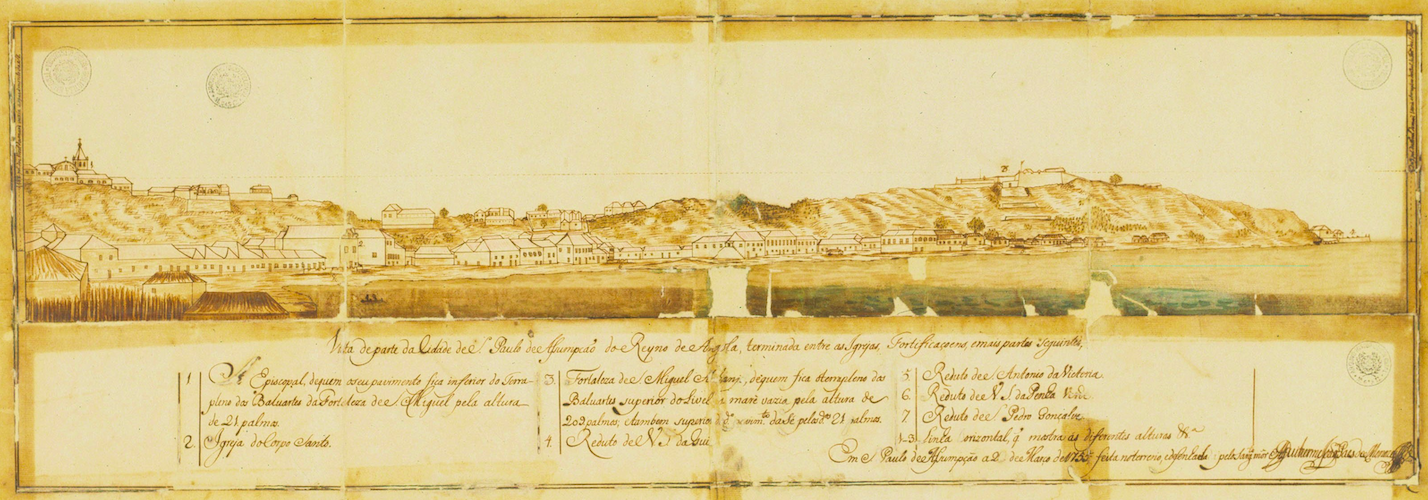 Vista de parte da Cidade de S. Paulo de Assumpcaõ do Reyno de Angola, terminada entre as Igrejas, Fortificaçoens, e mais partes seguintes,
1 Sé Episcopal, de quem o seu pavimento fica inferior do Terra-
pleno dos Baluartes da Fortaleza de S. Miguel pela altura
de 21 palmos.
2. Igreja do Corpo Santo.
3. Fortaleza de S. Miguel de quem fica o terrapleno dos
Baluartes superior do Livel a maré vazia pela altura de
209 palmos, e tambem superior da Sé pelos dos 21 palmos.
4. Reduto de N. S. da
5. Reduto de S. Antonio da Victoria
6. Reduto de N. S. da Penha
7. Reduto de S. Pedro Gonçalves
1-3 Linha Horizontal, q mostra as diferentes alturas &a
Em S. Paulo de Assumpção a 2 de Março de 1755 feita no terreno, e dezenhada pelo Sargto mór